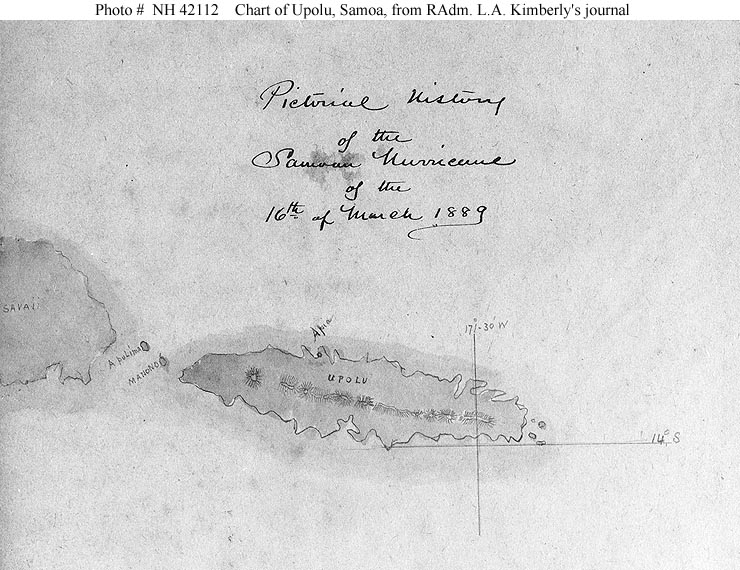 Photo # NH 42112 Chart of Upolu, Samoa, from RAdm. L.A. Kimberly's journal
Pictorial History
of the
Samoan Hurricane
of the
16th of March 1889
SAVAII
Apia
17°-30' W
Apolima
MANONO
UPOLU
14° S